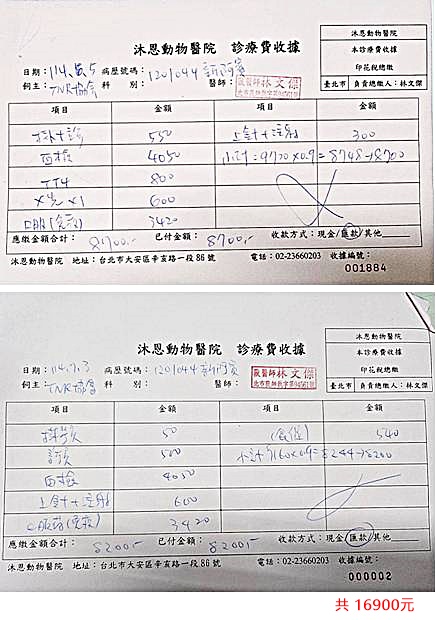 沐恩動物醫院 診療費收據
沐恩動物醫院
本診療費收據
印花稅總繳
臺北市 負責總繳人:林文傑
日期:114. 5 病歷號碼:1201044
飼主:TNR協會 科 別: 醫師:獸醫師林文傑
項目 金額 項目 金額
掛+診 550 上針+注射 300
血檢 4050 小計:9720×0.9=8748→8700
TT4 800
X光×1 600
口服 3420
應繳金額合計:8700.- 已付金額:8700.- 收款方式:現金/匯款/其他
沐恩動物醫院 地址:台北市大安區辛亥路一段86號 電話:02-23660203 收據編號:
001884
沐恩動物醫院 診療費收據
沐恩動物醫院
本診療費收據
印花稅總繳
臺北市 負責總繳人:林文傑
日期:114.7.3 病歷號碼:1201044
飼主:TNR協會 科 別: 醫師:獸醫師林文傑
項目 金額 項目 金額
掛號 50 540
診察 500 小計9160×0.9=8244→8200
血檢 4050
上針+注射 600
口服 3420
應繳金額合計:8200.- 已付金額:8200.- 收款方式:現金/匯款/其他
沐恩動物醫院 地址:台北市大安區辛亥路一段86號 電話:02-23660203 收據編號:
000002
共 16900元